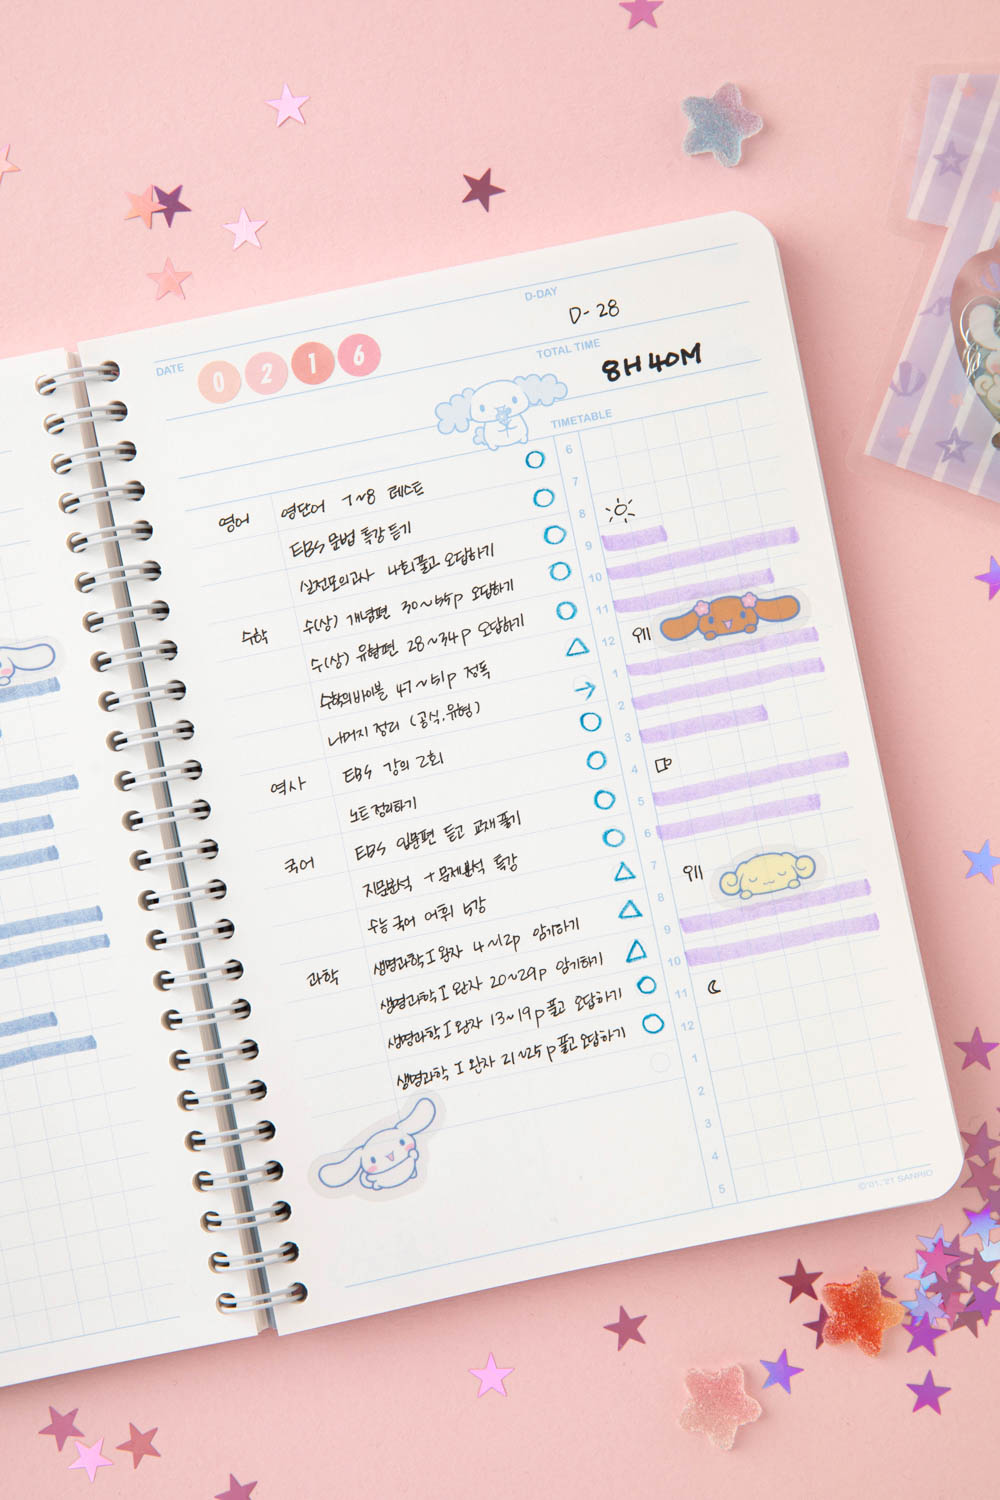 D-DAY D-28
DATE 0216
TOTAL TIME 8H 40M
TIMETABLE
영어 영단어 7~8 테스트
EBS 문법 특강 듣기
실전모의고사 4회 풀고 오답하기
수학 수(상) 개념편 30~55p 오답하기
수(상) 유형편 28~34p 오답하기
수학의 바이블 47~51p 정독
나머지 정리 (공식, 유형)
역사 EBS 강의 2회
노트 정리하기
국어 EBS 입문편 듣고 교재 풀기
지문분석 + 문제분석 특강
수능 국어 어휘 5강
과학 생명과학 I 완자 4~12p 암기하기
생명과학 I 완자 20~29p 암기하기
생명과학 I 완자 13~19p 풀고 오답하기
생명과학 I 완자 21~25p 풀고 오답하기
6
7
8
9
10
11
12
1
2
3
4
5
6
7
8
9
10
11
12
1
2
3
4
5
©'01, '21 SANRIO